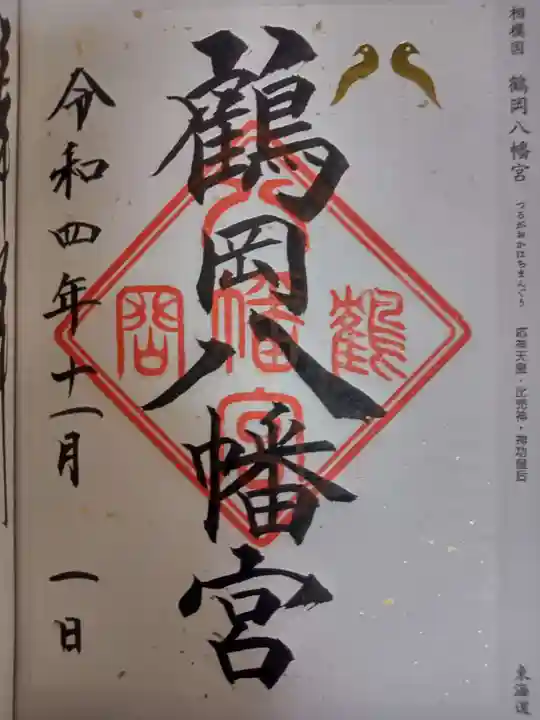 相模国 鶴岡八幡宮 つるがおかはちまんぐう 応神天皇・比売神・神功皇后
東海道
鶴岡八幡宮
鶴岡八幡宮
令和四年十一月 一日